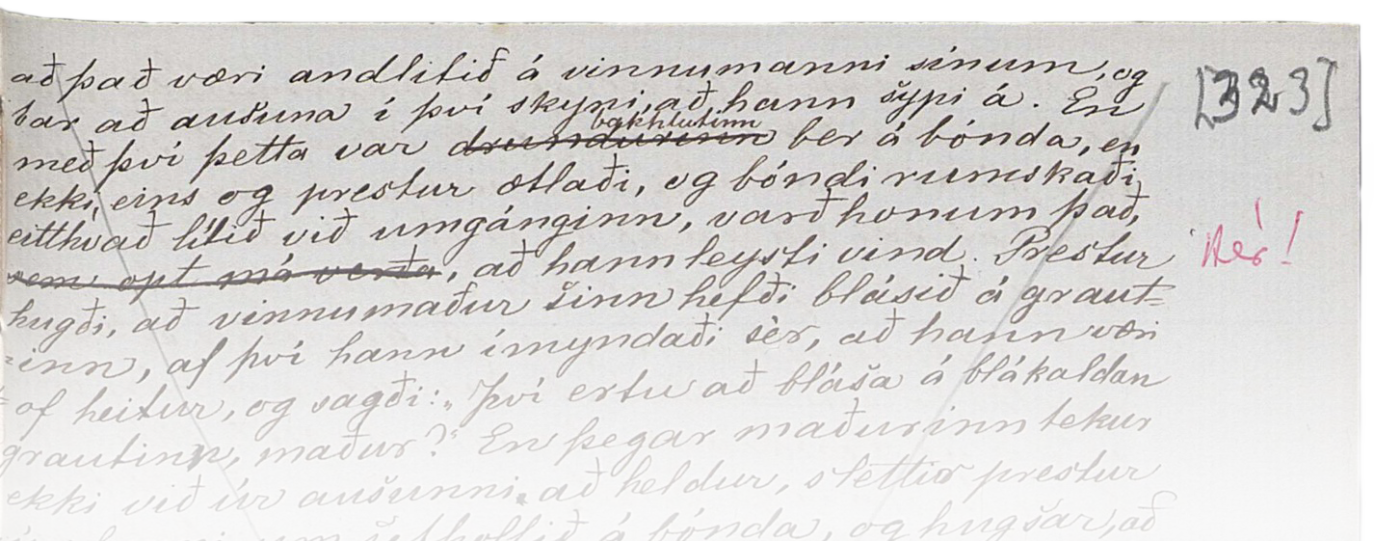 að það væri andlitið á vinnumanni sínum, og [323]
bar að ausuna í því skyni, að hann sypi á. En
bakhlutinn
með því þetta var drundurinn ber á bónda, en
ekki, eins og prestur ætlaði, og bóndi rumskaði
eitthvað lítið við umgánginn, varð honum það,
Hér!
sem opt má verða, að hann leysti vind. Prestur
hugði, að vinnumaður sinn hefði blásið á graut=
=inn, af því hann ímyndaði sèr, að hann væri
of heitur, og sagði: „Því ertu að blása á blákaldan
grautinn, maður?“ En þegar maðurinn tekur
ekki við úr ausunni, að heldur, slettir prestur
á bónda, og hugsar, að